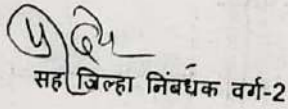 सह जिल्हा निबंधक वर्ग-2